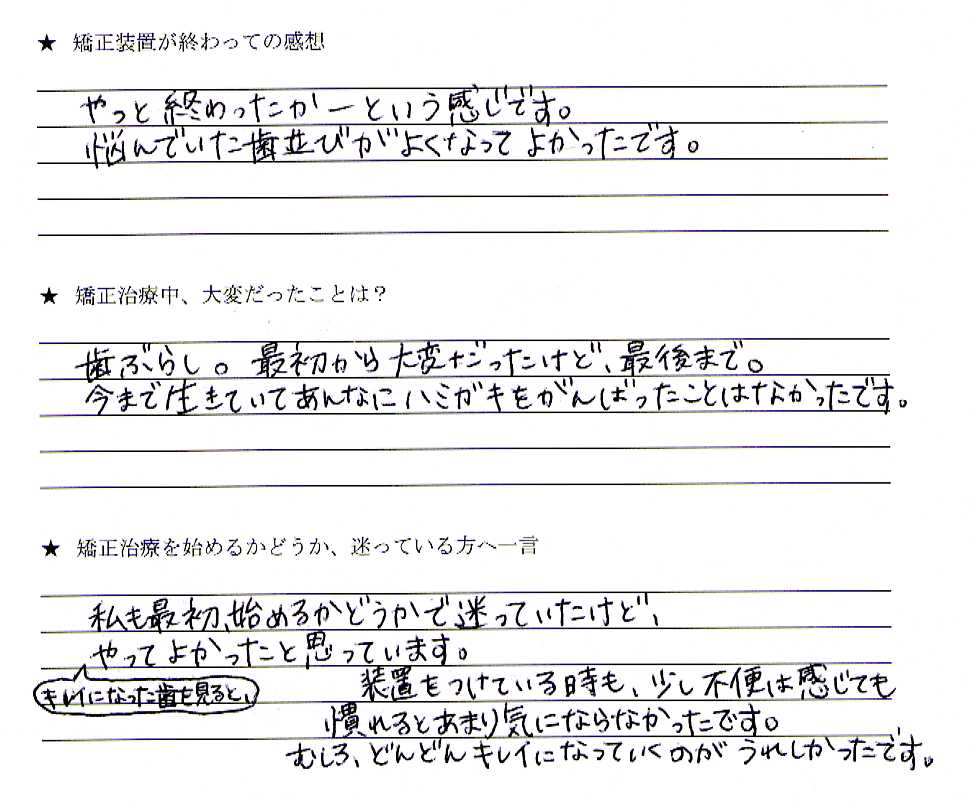 ★ 矯正装置が終わっての感想
やっと終わったかーという感じです。
悩んでいた歯並びがよくなってよかったです。
★ 矯正治療中、大変だったことは？
歯ぶらし。最初から大変だったけど、最後まで。
今まで生きていてあんなにハミガキをがんばったことはなかったです。
★ 矯正治療を始めるかどうか、迷っている方へ一言
私も最初、始めるかどうかで迷っていたけど、
やってよかったと思っています。
キレイになった歯を見ると、
装置をつけている時も、少し不便は感じても
慣れるとあまり気にならなかったです。
むしろ、どんどんキレイになっていくのがうれしかったです。